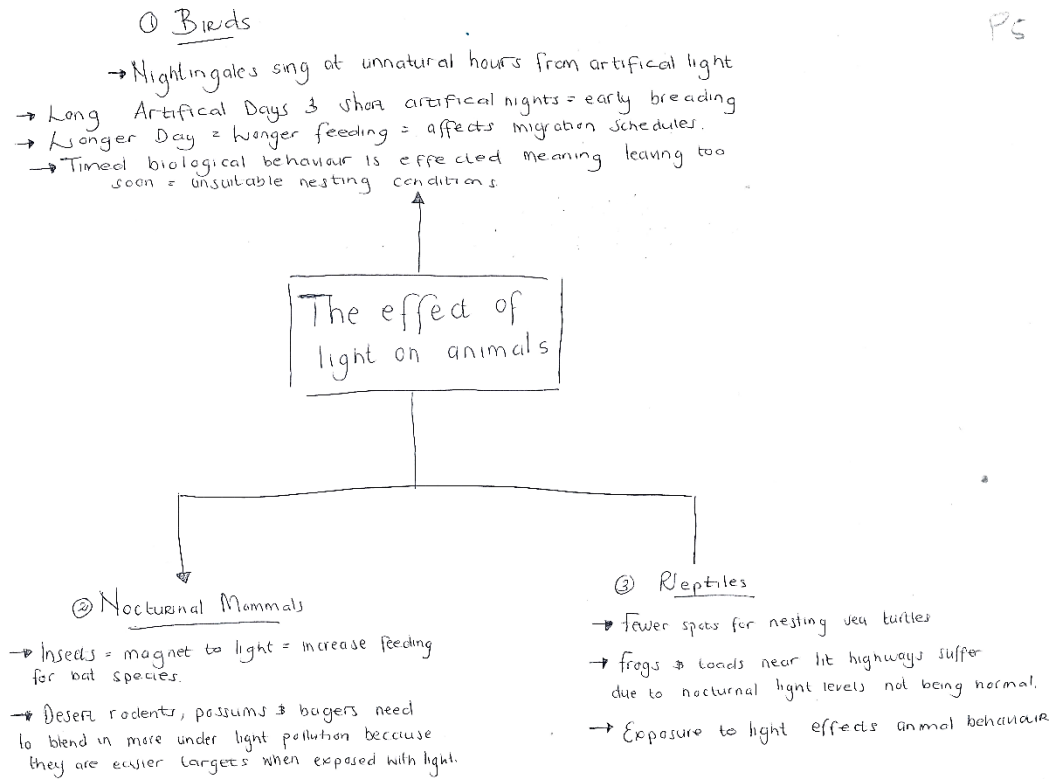 ① Birds
P5
→ Nightingales sing at unnatural hours from artifical light
→ Long Artifical Days & short artifical nights = early breading
→ Longer Day = longer feeding = affects migration schedules.
→ Timed biological behaviour is effected meaning leaving too
soon = unsuitable nesting conditions.
The effect of
light on animals
② Nocturnal Mammals
→ Insects = magnet to light = increase feeding
for bat species.
→ Desert rodents, possums & bagers need
to blend in more under light pollution because
they are easier targets when exposed with light.
③ Reptiles
→ Fewer spots for nesting sea turtles
→ frogs & toads near lit highways suffer
due to nocturnal light levels not being normal.
→ Exposure to light effects animal behaviour